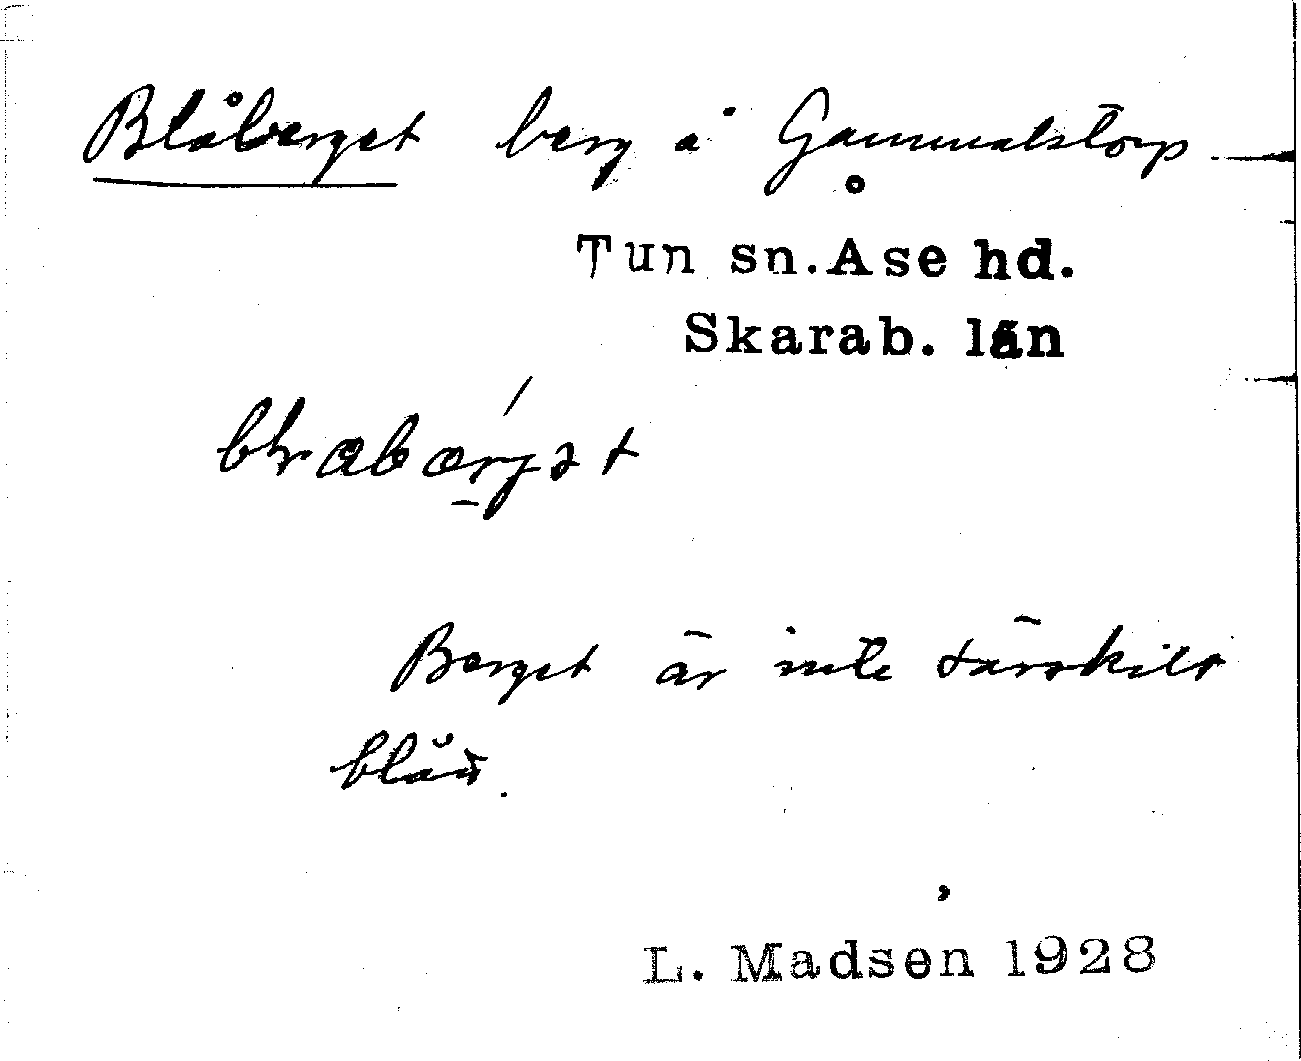 Blåberget berg å Gammalstorp
Tun sn. Åse hd.
Skarab. län
Berget är inte särskilt
blått.
L. Madsen 1928